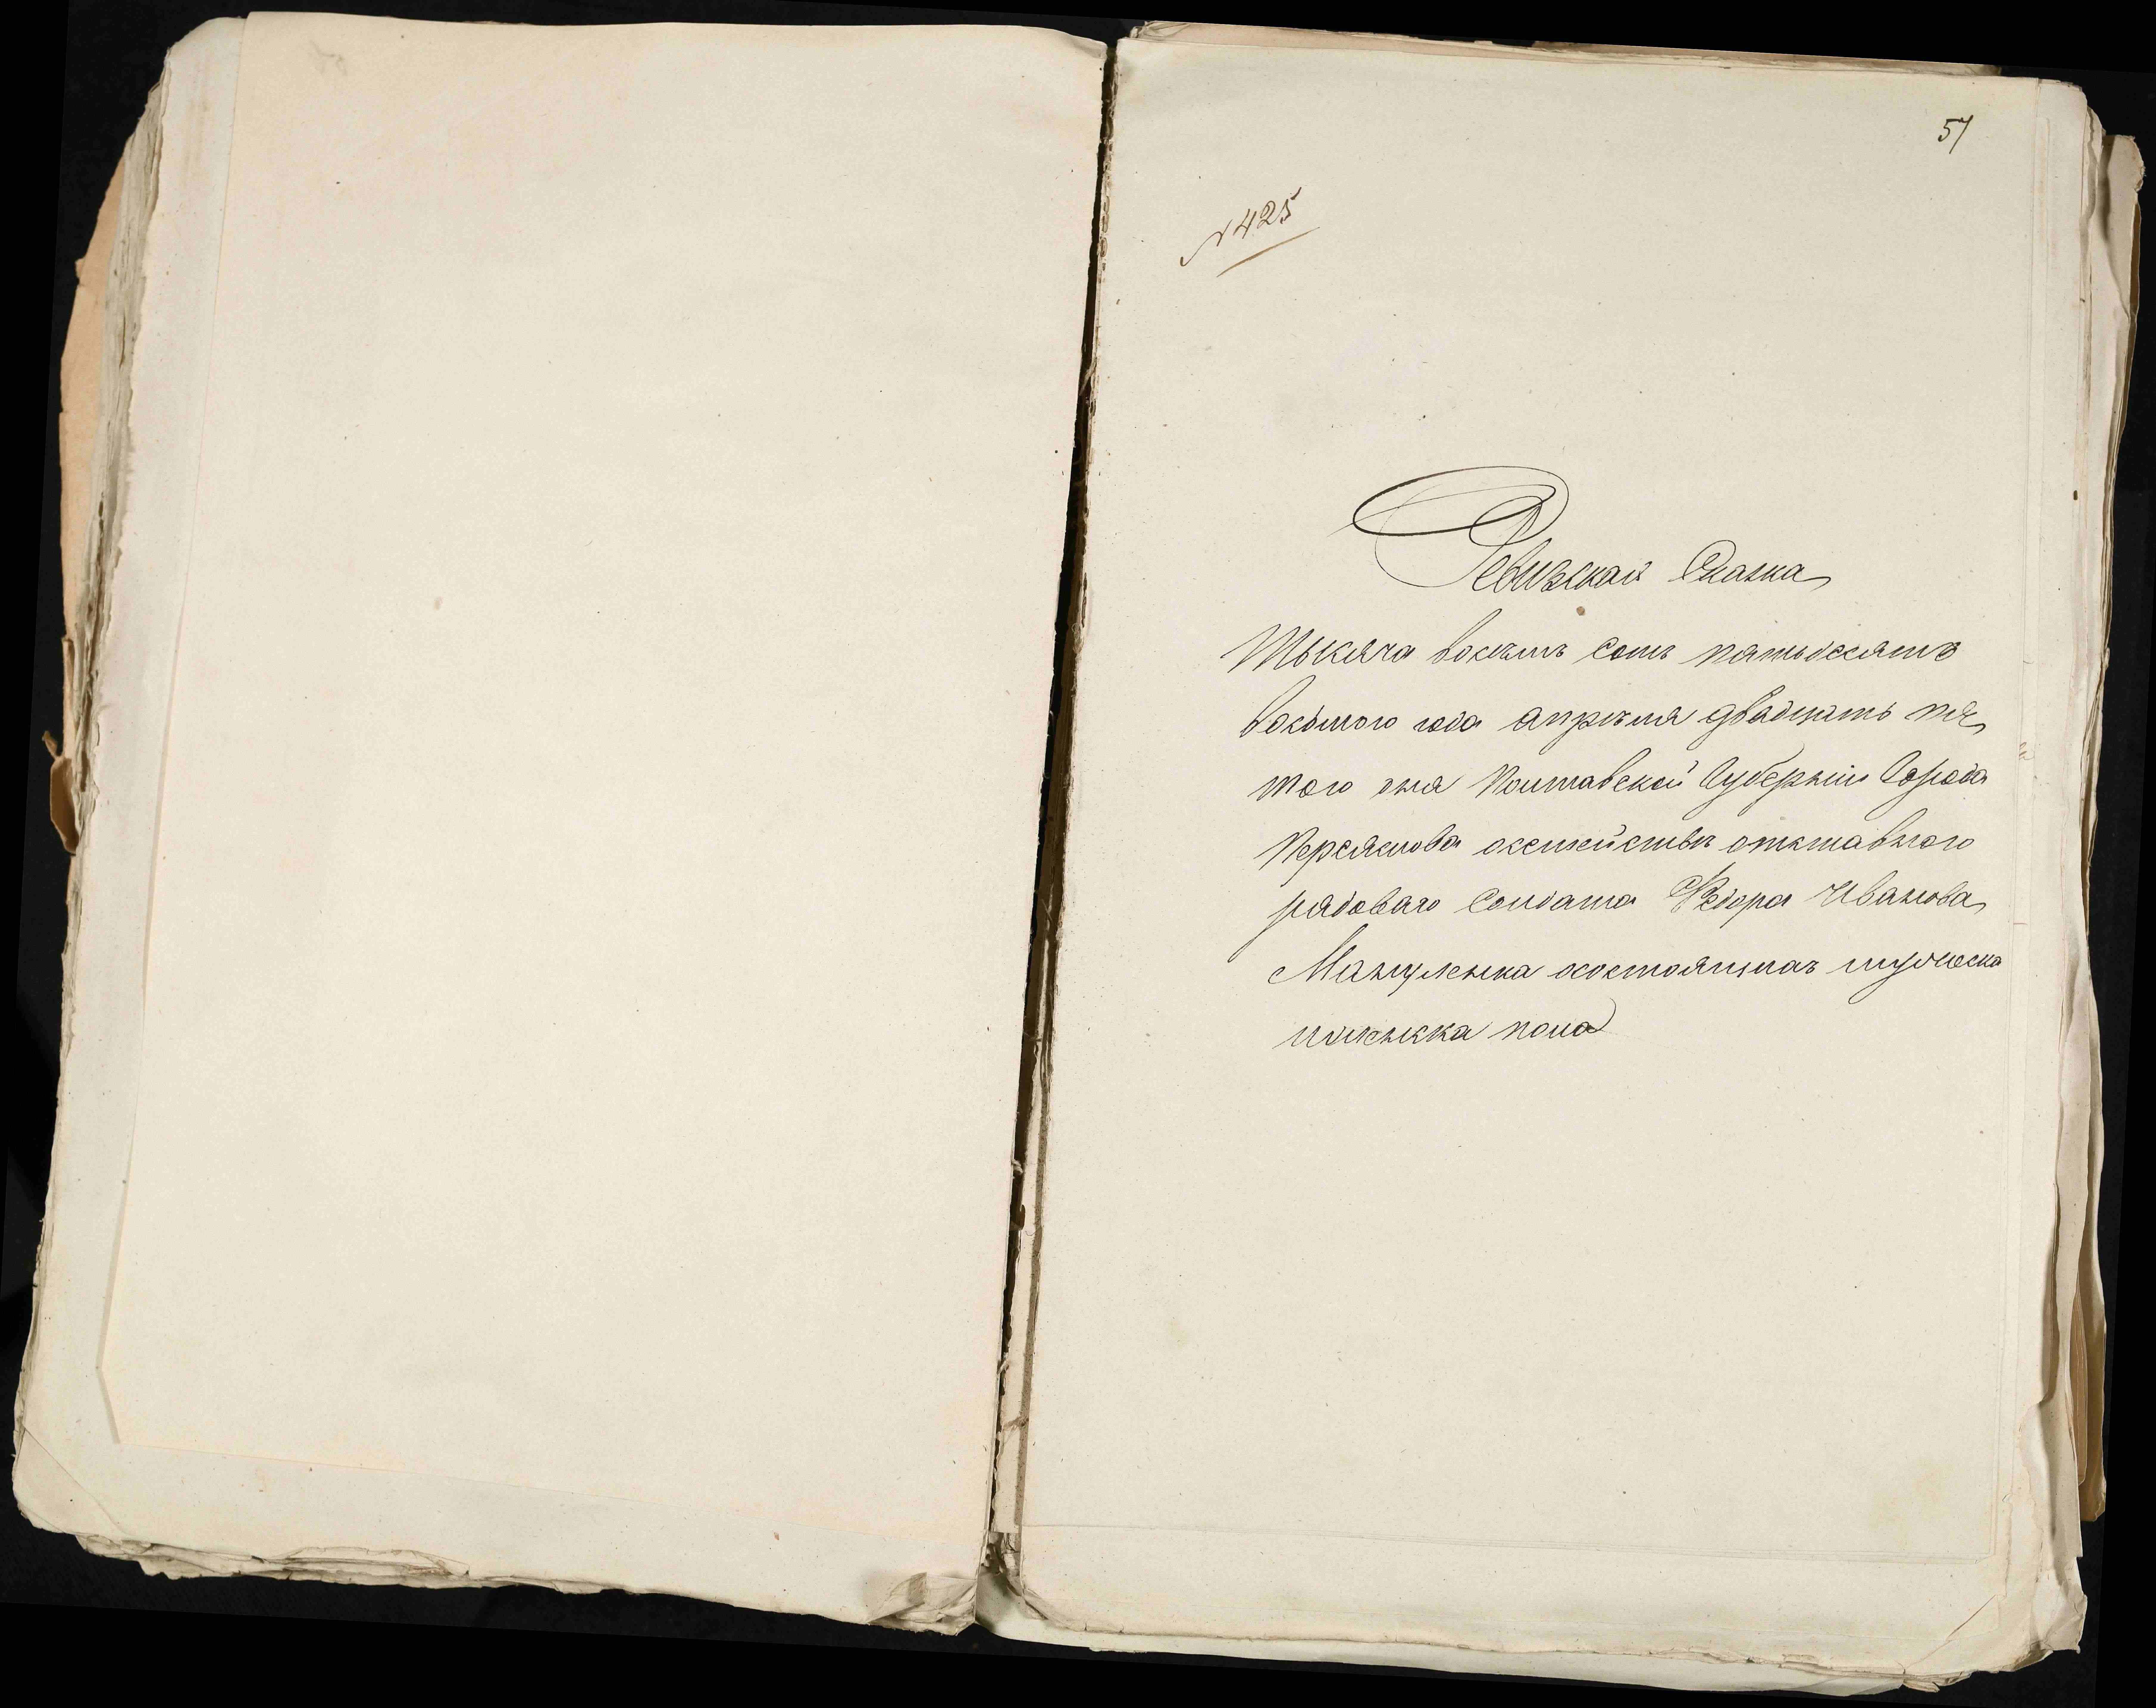 57
№ 425
Ревизская Сказка
Тысяча восемь сотъ пятьдесятъ
восьмого года апреля двадцать пя
того дня Полтавской Губерніи Города
Переяслова осемействѣ отставного
рядоваго Солдата Федора Иванова
Мануленка осостоящихъ мужеска
иженска пола